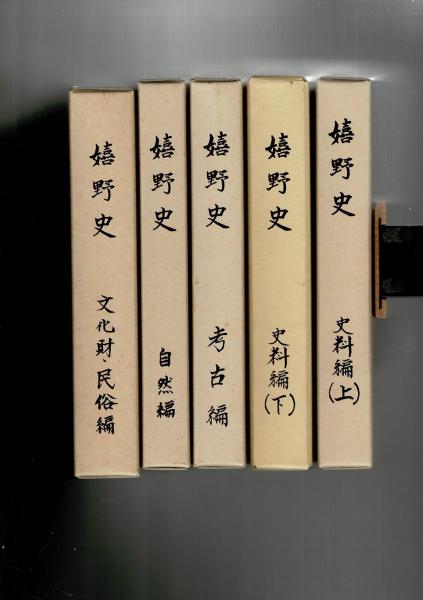 嬉野史 史料編(上)
嬉野史 史料編(下)
嬉野史 考古編
嬉野史 自然編
嬉野史 文化財・民俗編